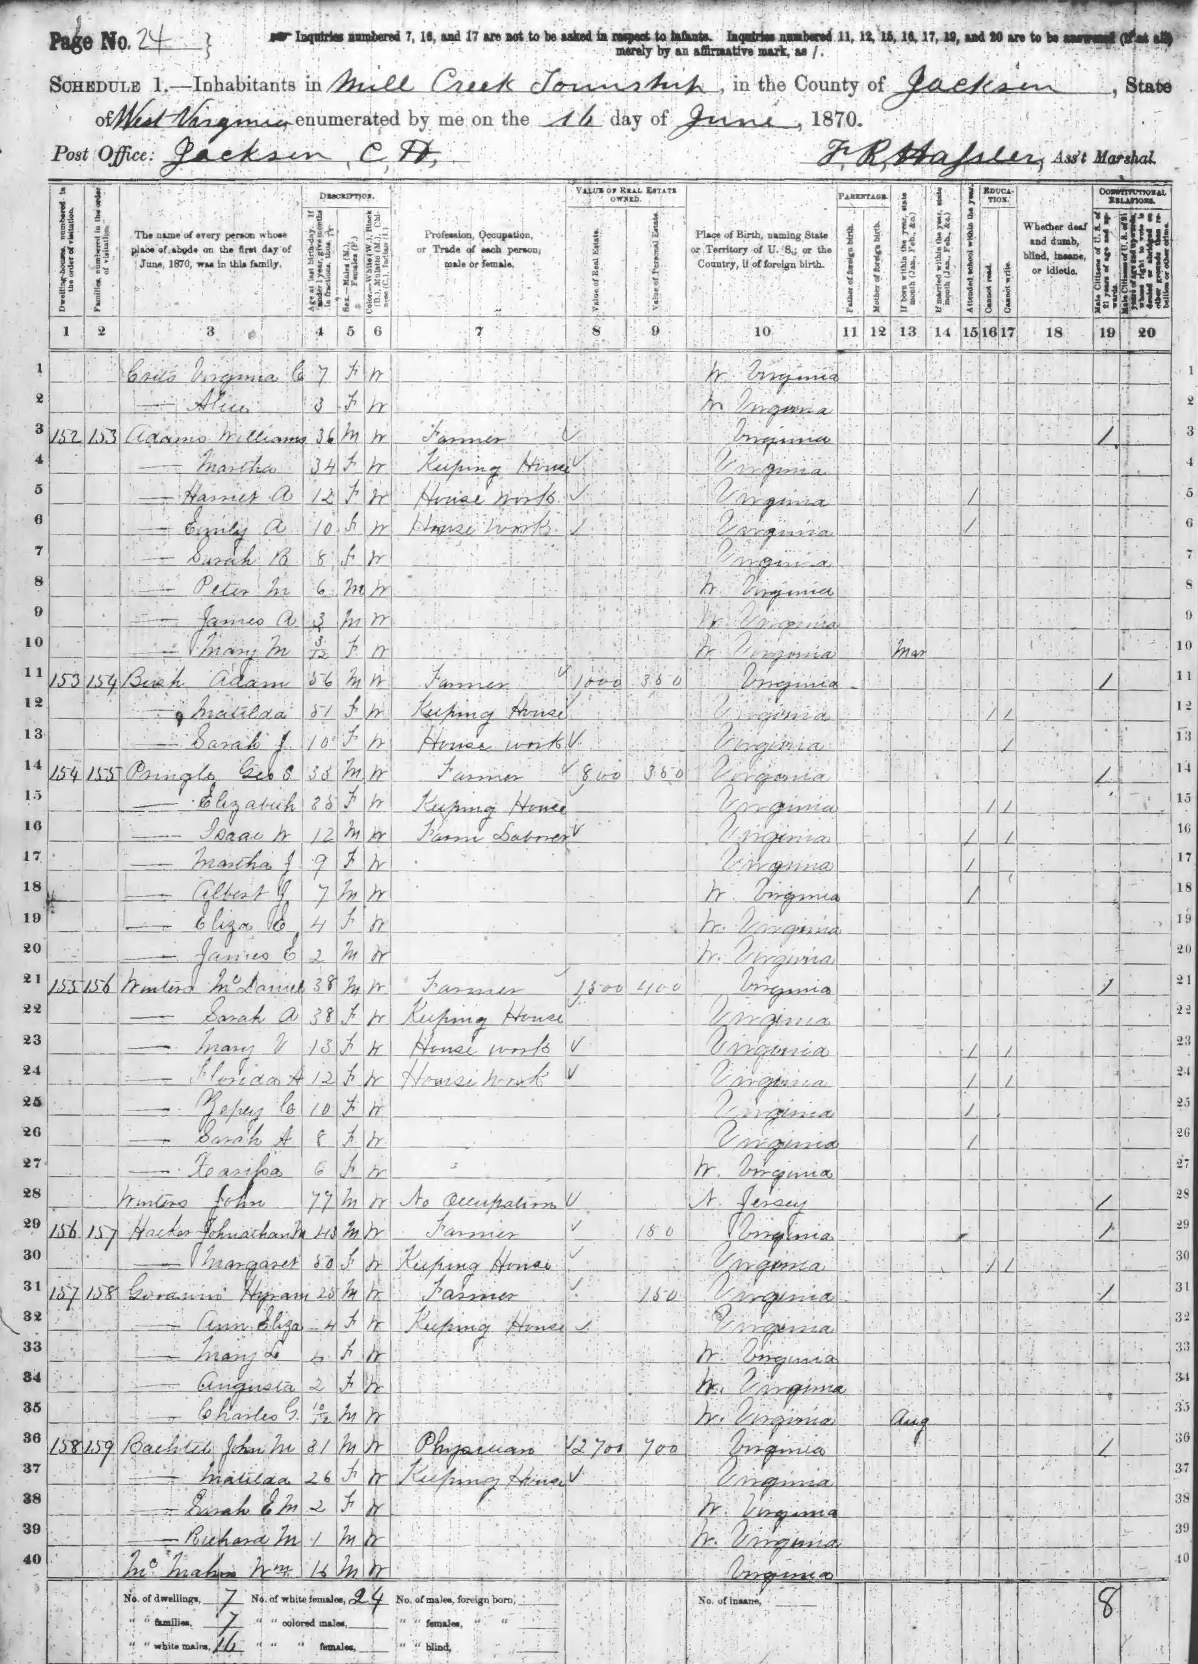 Page No. 24
Inquiries numbered 7, 16, and 17 are not to be asked in respect to infants. Inquiries numbered 11, 12, 15, 16, 17, 19, and 20 are to be answered (if at all)
merely by an affirmative mark, as /.
SCHEDULE 1.—Inhabitants in Mill Creek Township, in the County of Jackson, State
of West Virginia, enumerated by me on the 16 day of June, 1870.
Post Office: Jackson C. H. F. R. Hassler, Ass't Marshal.
DESCRIPTION. VALUE OF REAL ESTATE OWNED. PARENTAGE. EDUCATION. CONSTITUTIONAL RELATIONS.
Dwelling-houses, numbered in the order of visitation.
Families, numbered in the order of visitation.
The name of every person whose place of abode on the first day of June, 1870, was in this family.
Age at last birth-day. If under 1 year, give months in fractions, thus
Sex.—Males (M.), Females (F.)
Color.—White (W.), Black (B.), Mulatto (M.), Chinese (C.), Indian (I.)
Profession, Occupation, or Trade of each person, male or female.
Value of Real Estate.
Value of Personal Estate.
Place of Birth, naming State or Territory of U. S.; or the Country, if of foreign birth.
Father of foreign birth.
Mother of foreign birth.
If born within the year, state month (Jan., Feb., &c.)
If married within the year, state month (Jan., Feb., &c.)
Attended school within the year.
Cannot read.
Cannot write.
Whether deaf and dumb, blind, insane, or idiotic.
Male Citizens of U. S. of 21 years of age and upwards.
Male Citizens of U. S. of 21 years of age and upwards, whose right to vote is denied or abridged on other grounds than rebellion or other crime.
1 2 3 4 5 6 7 8 9 10 11 12 13 14 15 16 17 18 19 20
1 Virginia C 7 F W W. Virginia 1
2 — Alice 3 F W W. Virginia 2
3 152 153 Adams Williams 36 M W Farmer ✓ Virginia / 3
4 — Martha 34 F W Keeping House ✓ Virginia 4
5 — Harriet A 12 F W House work ✓ Virginia / 5
6 — Emily A 10 F W House work ✓ Virginia / 6
7 — Sarah B 8 F W Virginia 7
8 — Peter M 6 M W W. Virginia 8
9 — James A 3 M W W. Virginia 9
10 — Mary M 3/12 F W W. Virginia Mar 10
11 153 154 Adam 56 M W Farmer ✓ 1000 350 Virginia / 11
12 — Matilda 51 F W Keeping House Virginia / / 12
13 — Sarah J. 10 F W House work ✓ Virginia / 13
14 154 155 Pringle Geo 35 M W Farmer ✓ 800 350 Virginia / 14
15 — Elizabeth 35 F W Keeping House Virginia / / 15
16 — Isaac W 12 M W Farm Laborer ✓ Virginia / / 16
17 — Martha J 9 F W Virginia / 17
18 — Albert J 7 M W W. Virginia / 18
19 — Eliza E 4 F W W. Virginia 19
20 — James E 2 M W W. Virginia 20
21 155 156 Winters McDaniel 38 M W Farmer 1500 400 Virginia / 21
22 — Sarah A 38 F W Keeping House Virginia 22
23 — Mary V 13 F W House work ✓ Virginia / / 23
24 — Florida A 12 F W House work ✓ Virginia / / 24
25 — 10 F W Virginia / 25
26 — Sarah A 8 F W Virginia / 26
27 — 6 F W W. Virginia 27
28 Winters John 77 M W No Occupation ✓ N. Jersey / 28
29 156 157 Johnathan M 43 M W Farmer ✓ 150 Virginia / 29
30 — Margaret 50 F W Keeping House ✓ Virginia / / 30
31 157 158 Hyram 25 M W Farmer ✓ 150 Virginia / 31
32 — Ann Eliza F W Keeping House ✓ Virginia 32
33 — Mary L F W W. Virginia 33
34 — Augusta 2 F W W. Virginia 34
35 — Charles G. 10/12 M W W. Virginia Aug 35
36 158 159 John M 31 M W Physician ✓ 2700 700 Virginia / 36
37 — Matilda 26 F W Keeping House ✓ Virginia 37
38 — Sarah E M 2 F W W. Virginia 38
39 — Richard M 1 M W W. Virginia 39
40 McMahon Wm 16 M W Virginia 40
No. of dwellings, 7 No. of white females, 24 No. of males, foreign born, No. of insane, 8
" " families, 7 " " colored males, " " females, " "
" " white males, 16 " " " females, " " blind,